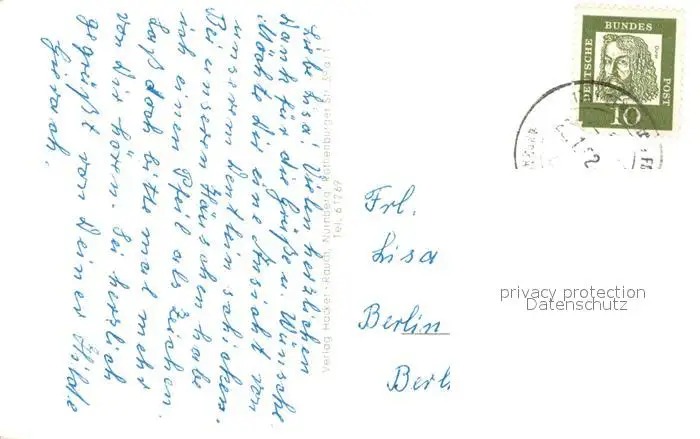 Liebe Lisa! Vielen herzlichen
Dank für die Grüße u. Wünsche.
Möchte dir eine Ansicht von
unserem Dentlein schicken.
Bei unserem Häuschen habe
ich einen Pfeil als Zeichen.
Laß doch bitte mal mehr
von dir hören. Sei herzlich
gegrüßt von Deiner Hilde
Verlag Hacker-Rauch, Nürnberg, Rothenburger Str.
Tel. 61269
DEUTSCHE
BUNDES
POST
Dürer
10
Frl.
Lisa
Berlin
Berl
privacy protection
Datenschutz